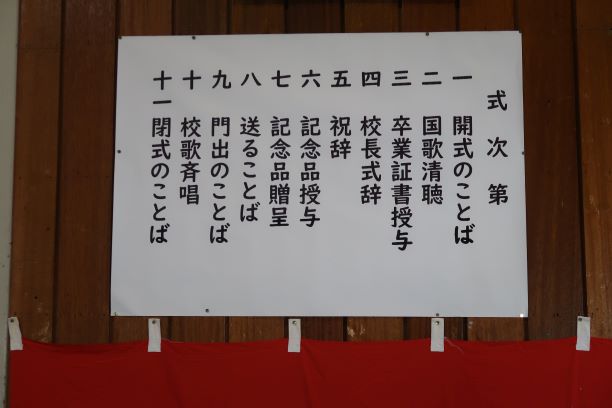 式次第
一 開式のことば
二 国歌清聴
三 卒業証書授与
四 校長式辞
五 祝辞
六 記念品授与
七 記念品贈呈
八 送ることば
九 門出のことば
十 校歌斉唱
十一 閉式のことば